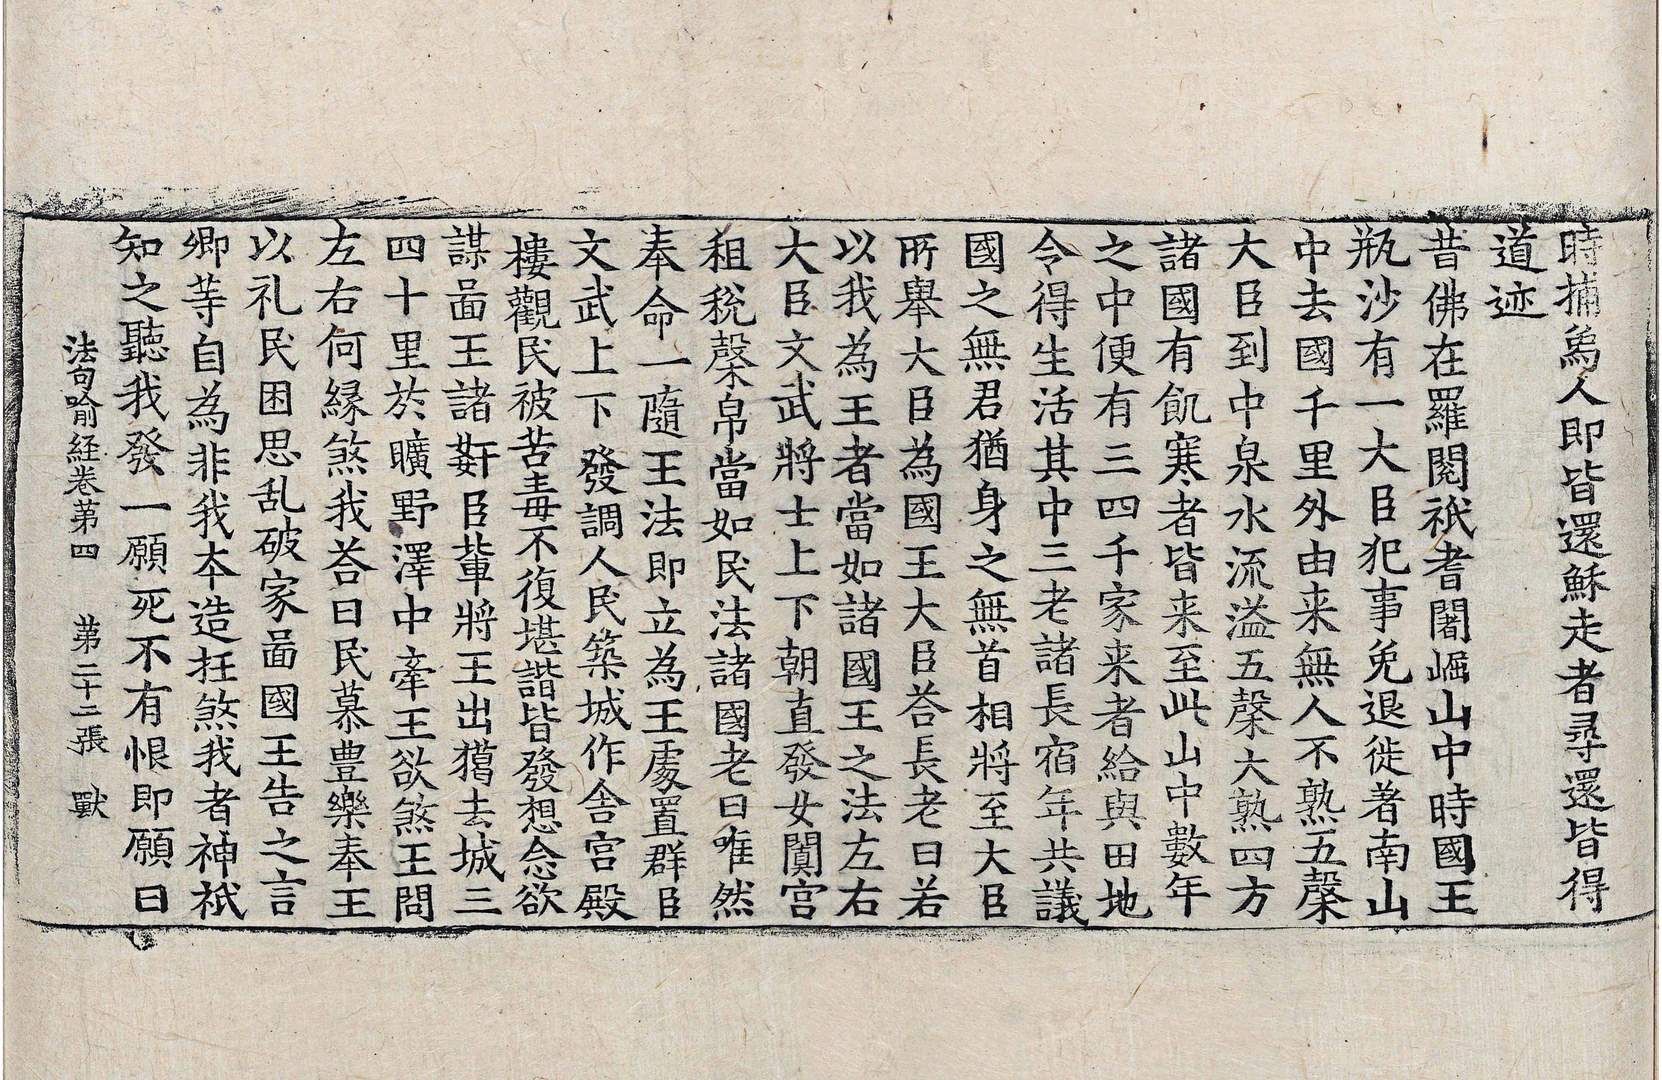 時捕爲人即皆還穌走者尋還皆得
道迹
昔佛在羅閱祇耆闍崛山中時國王
瓶沙有一大臣犯事免退徙著南山
中去國千里外由来無人不熟五榖
大臣到中泉水流溢五榖大熟四方
諸國有飢寒者皆来至此山中數年
之中便有三四千家来者給與田地
令得生活其中三老諸長宿年共議
國之無君猶身之無首相將至大臣
所舉大臣為國王大臣荅長老曰若
以我為王者當如諸國王之法左右
大臣文武將士上下朝直發女闐宫
租稅榖帛當如民法諸國老曰唯然
奉命一隨王法即立為王䖏置群臣
文武上下發調人民築城作舎宫殿
樓觀民被苦毒不復堪諧皆發想念欲
謀啚王諸姧臣輩將王出獦去城三
四十里於曠野澤中牽王欲煞王問
左右何縁煞我荅曰民慕豊樂奉王
以礼民困思乱破家啚國王告之言
卿䓁自為非我夲造抂煞我者神祇
知之聽我發一願死不有恨即願曰
法句喻経卷苐四 苐二十二張 獸